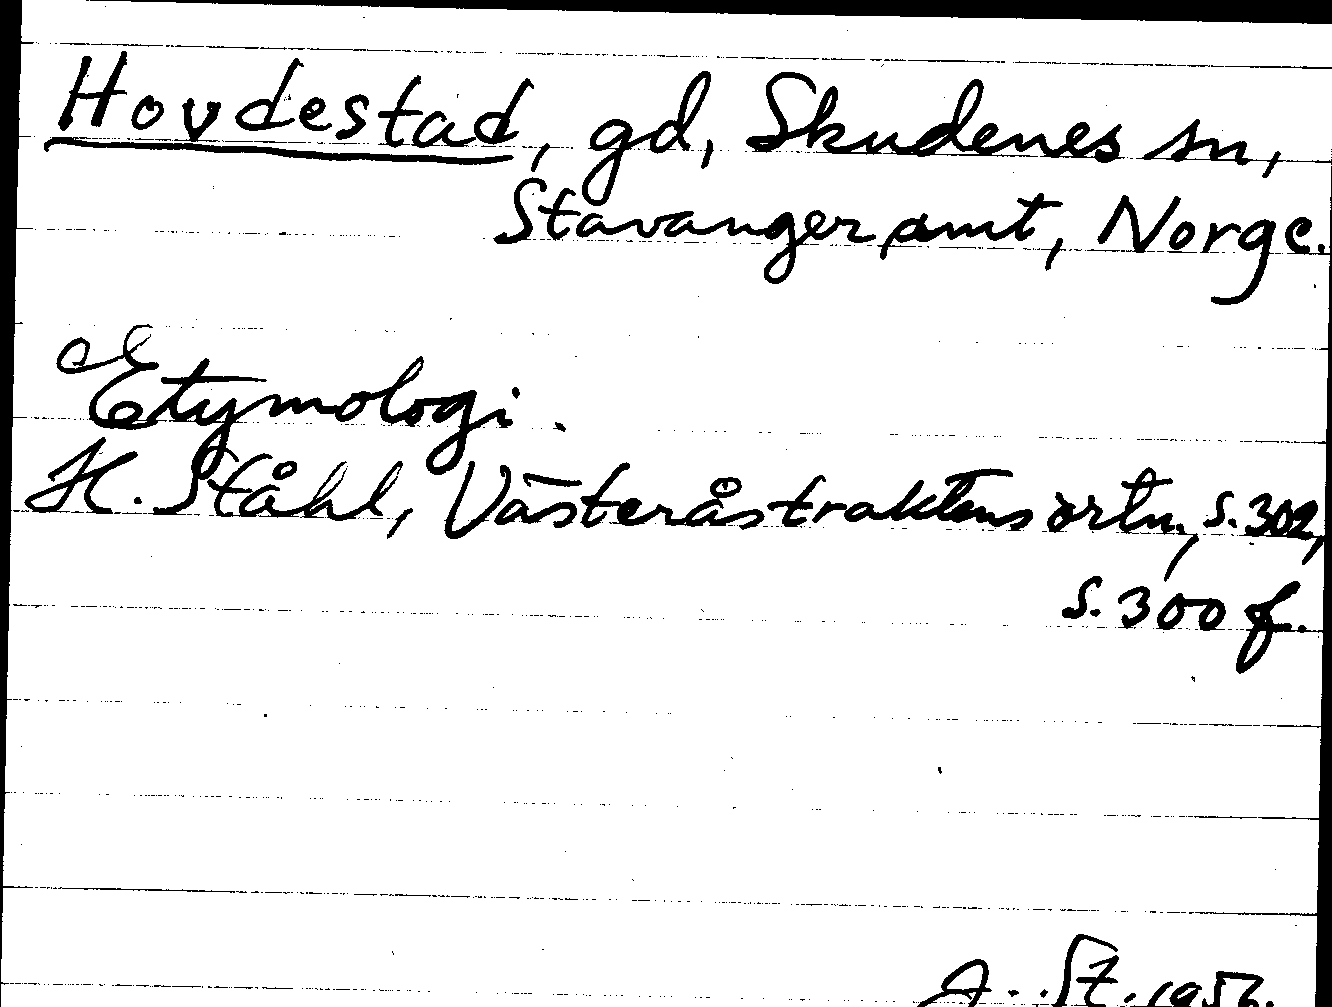 Hovdestad, gd, Skudenes sn,
Stavanger amt, Norge.
Etymologi.
H. Ståhl, Västeråstraktens ortn., s. 302,
s. 300 f.
St. 195